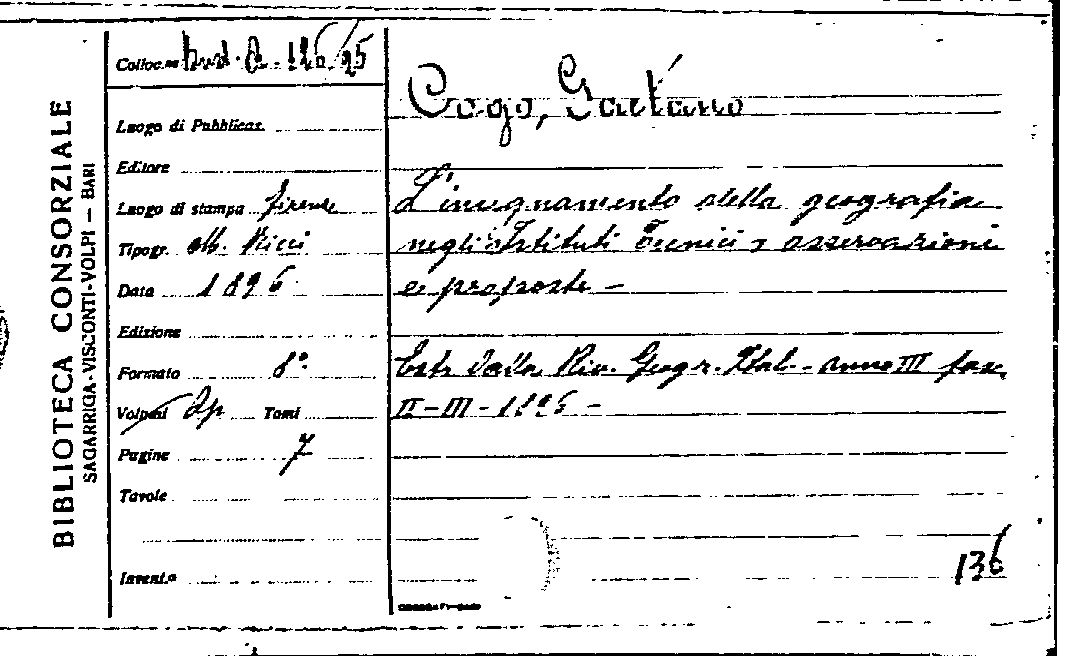 BIBLIOTECA CONSORZIALE
SAGARRIGA-VISCONTI-VOLPI — BARI
Colloc.ne 126/25
Luogo di Pubblicaz.
Editore
Luogo di stampa Firenze
Tipogr. M. Ricci
Data 1896
Edizione
Formato 8°
Volumi Op Tomi
Pagine 7
Tavole
Invent.o
Cogo, Gaetano
L'insegnamento della geografia
negli Istituti Tecnici, osservazioni
e proposte —
Estr. dalla Riv. Geogr. Ital. - anno III fasc.
II-III - 1896 -
136